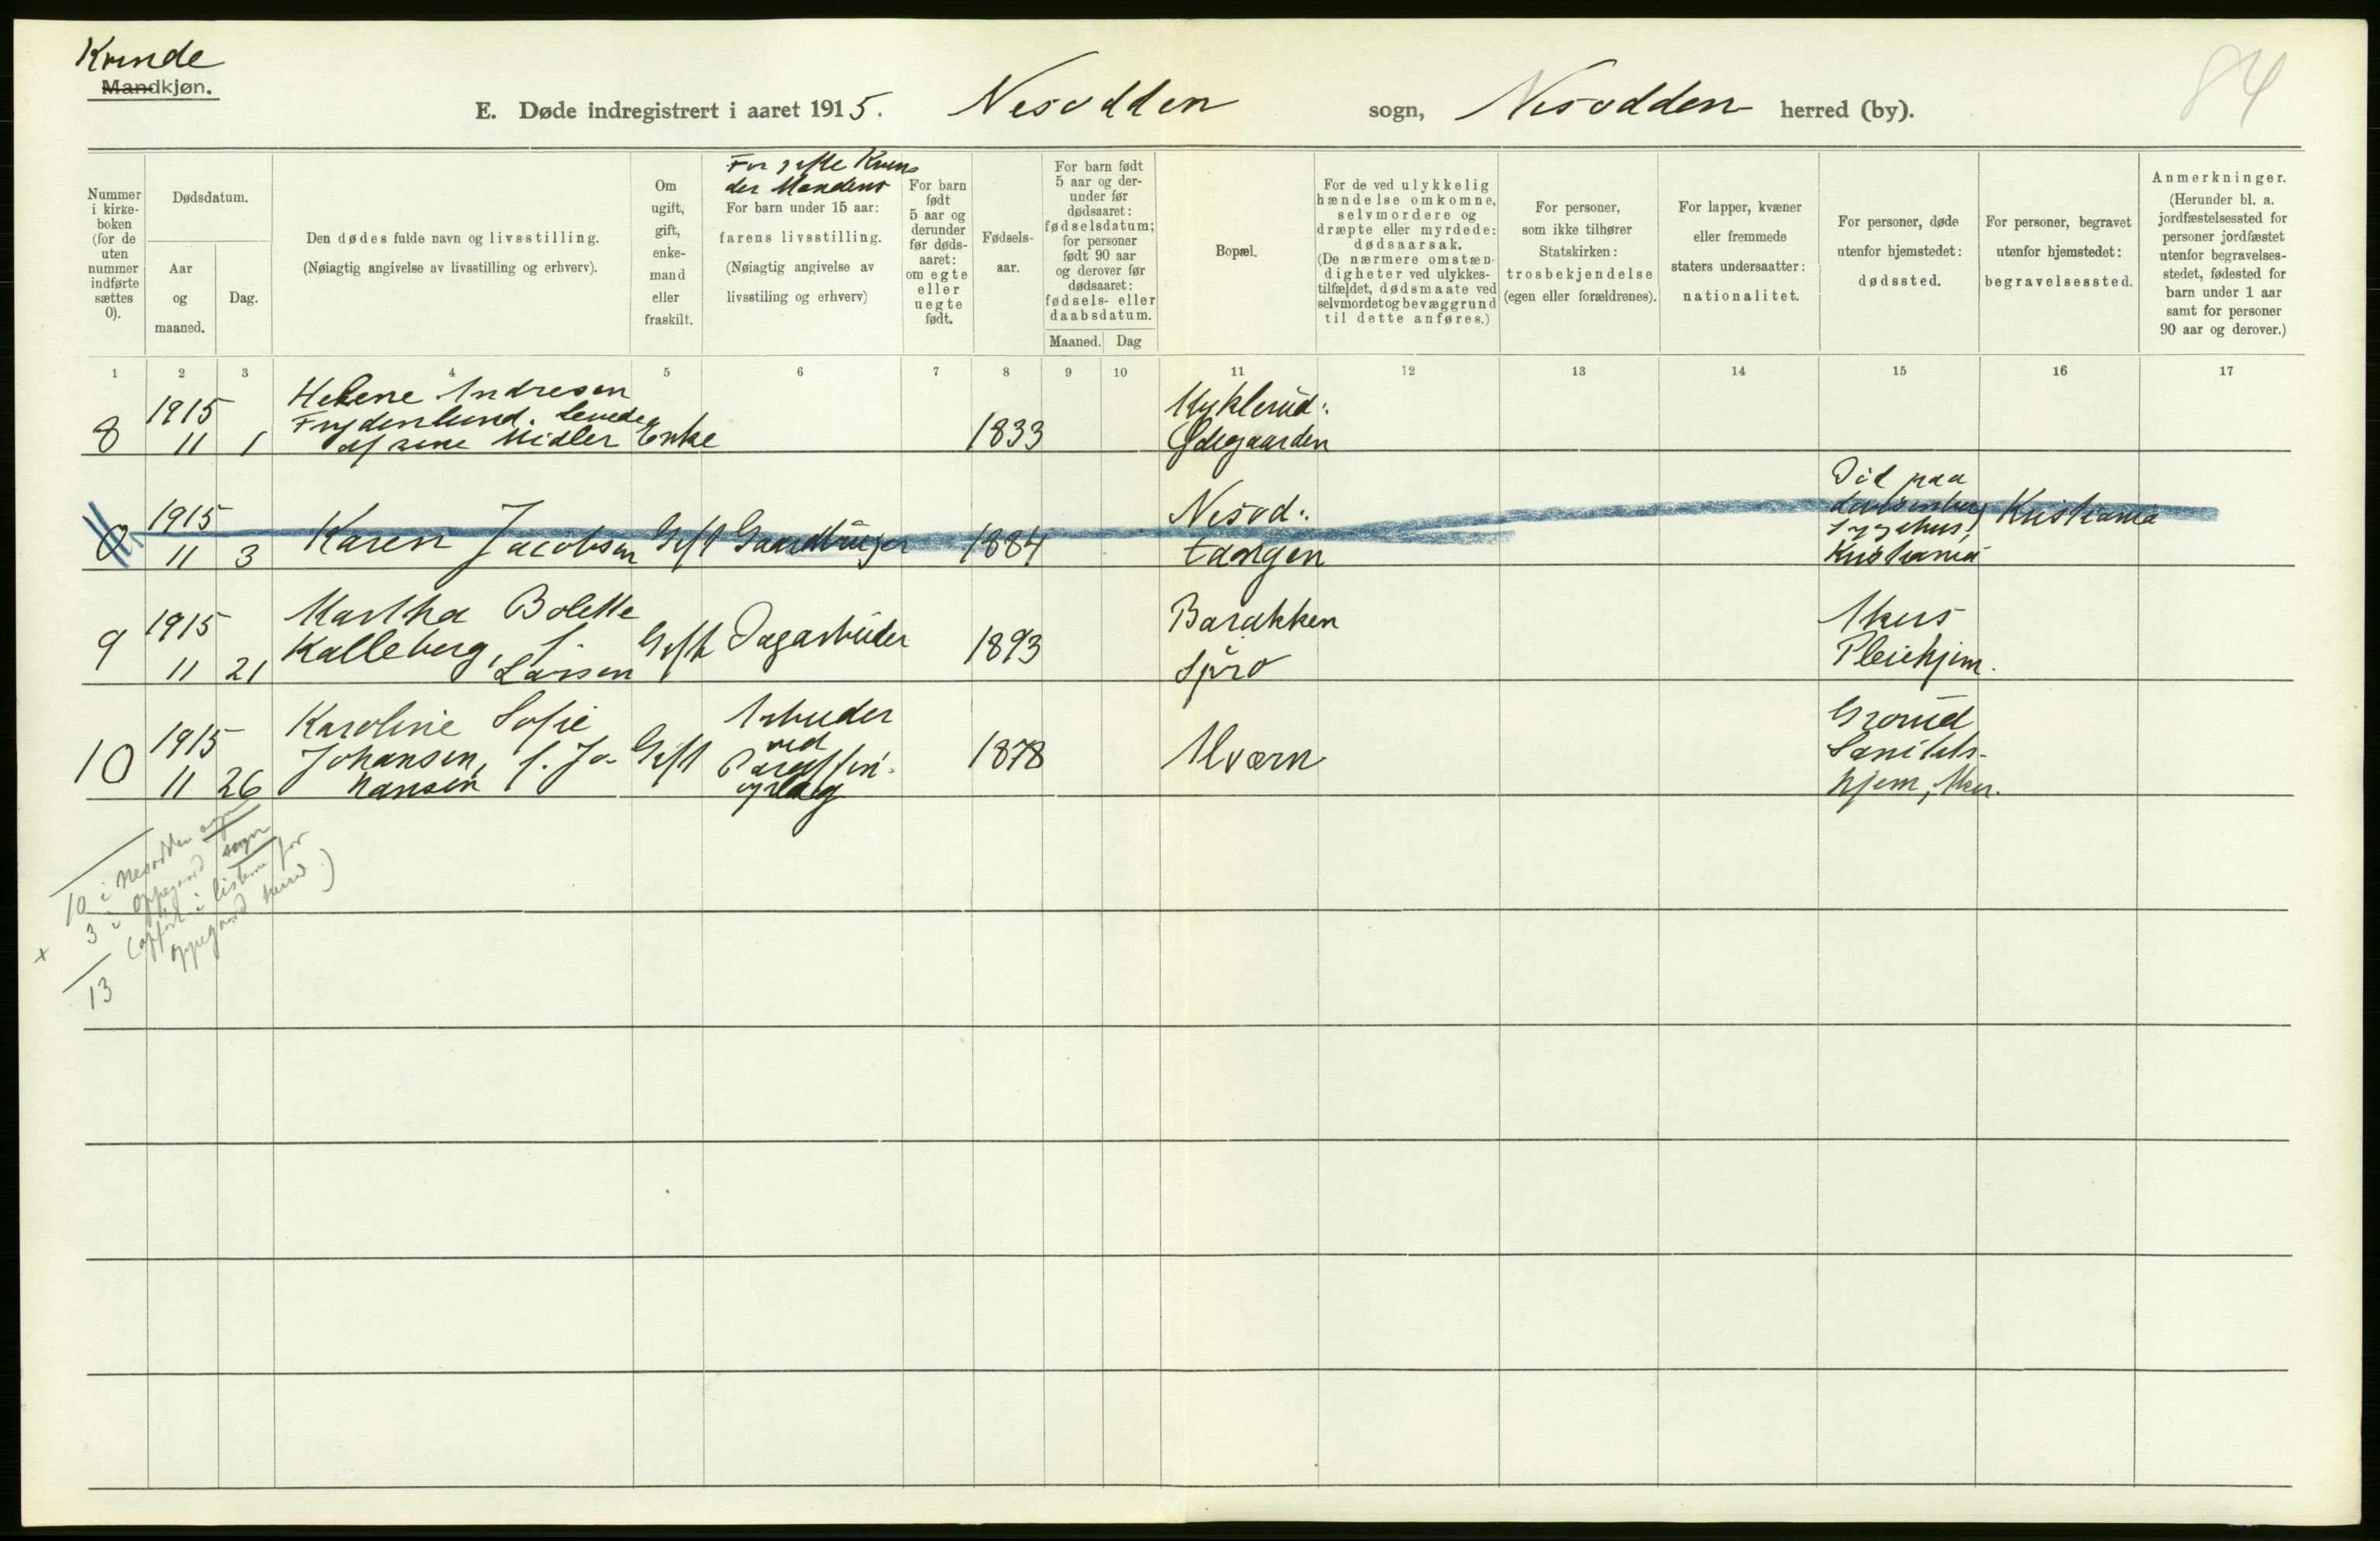 Kvinde
Mandkjøn.
84
E. Døde indregistrert i aaret 1915. Nesodden sogn, Nesodden herred (by).
Nummer i kirke-boken (for de uten nummer indførte sættes 0).
Dødsdatum.
Aar og maaned.
Dag.
Den dødes fulde navn og livsstilling.
(Nøiagtig angivelse av livsstilling og erhverv).
Om ugift, gift, enke-mand eller fraskilt.
For gifte Kvin
der Mandens
For barn under 15 aar:
farens livsstilling.
(Nøiagtig angivelse av
livsstiling og erhverv)
For barn født 5 aar og derunder før døds-aaret: om egte eller uegte født.
Fødsels-aar.
For barn født 5 aar og der-under før dødsaaret: fødselsdatum; for personer født 90 aar og derover før dødsaaret: fødsels- eller daabsdatum.
Maaned. Dag
Bopæl.
For de ved ulykkelig hændelse omkomne, selvmordere og dræpte eller myrdede: dødsaarsak.
(De nærmere omstæn-digheter ved ulykkes-tilfældet, dødsmaate ved selvmordet og bevæggrund til dette anføres.)
For personer, som ikke tilhører Statskirken: trosbekjendelse (egen eller forældrenes).
For lapper, kvæner eller fremmede staters undersaatter: nationalitet.
For personer, døde utenfor hjemstedet: dødssted.
For personer, begravet utenfor hjemstedet: begravelsessted.
Anmerkninger.
(Herunder bl. a. jordfæstelsessted for personer jordfæstet utenfor begravelses-stedet, fødested for barn under 1 aar samt for personer 90 aar og derover.)
1 2 3 4 5 6 7 8 9 10 11 12 13 14 15 16 17
8 1915 11 1 Helene Andresen Frydenlund. Levede af sine Midler Enke 1833 Myklerud: Ødegaarden
0 1915 11 3 Karen Jacobsen Gift Gaardbruger 1884 Nesod: tangen Død paa Lovisenberg Sygehus, Kristiania Kristiania
9 1915 11 21 Martha Bolette Kalleberg, f. Larsen Gift Dagarbeider 1893 Barakken Spro Akers Pleiehjem.
10 1915 11 26 Karoline Sofie Johansen, f. Jo- hansen Gift Arbeider ved Paraffin- oplag 1878 Alværn Grorud Sanitets- hjem, Aker.
10 i Nesodden sogn
+ 3 i Oppegaard sogn
(opført i listerne for
Oppegaard herred)
13